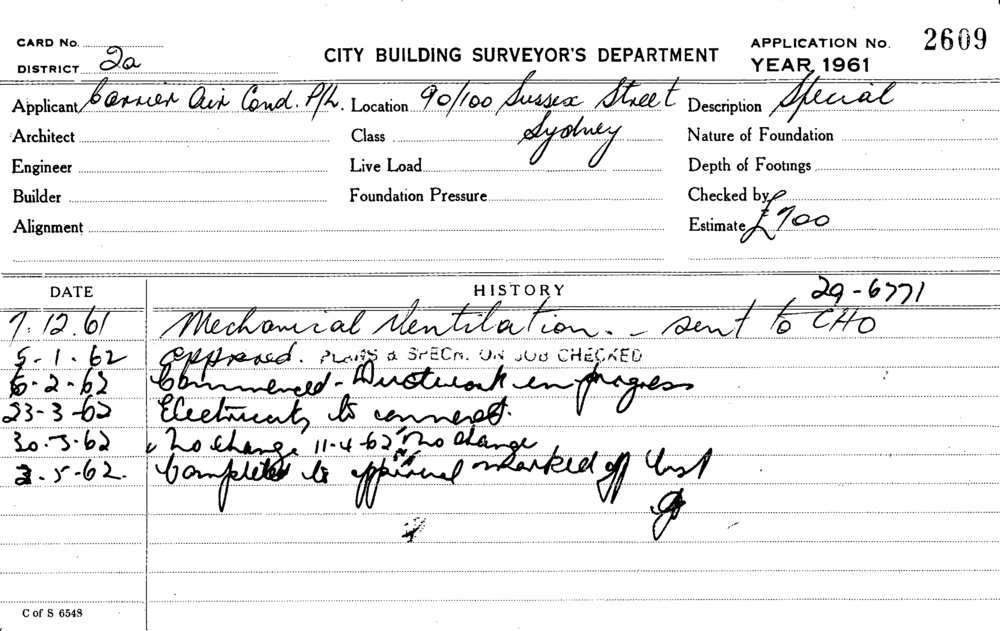 CARD No.
CITY BUILDING SURVEYOR'S DEPARTMENT
APPLICATION No. 2609
DISTRICT 2a
YEAR 1961
Applicant Carrier Air Cond. P/L. Location 90/100 Sussex Street Description Special
Architect Class Sydney Nature of Foundation
Engineer Live Load Depth of Footings
Builder Foundation Pressure Checked by
Alignment Estimate £700
DATE HISTORY 29-6771
7.12.61 Mechanical Ventilation. - sent to CHO
5-1-62 approved. PLANS & SPECN. ON JOB CHECKED
6-2-62 Commenced - Ductwork in progress
23-3-62 Electricity to connect.
30-3-62 No change 11-4-62 No change
2-5-62. Completed to approval marked off list
C of S 6548